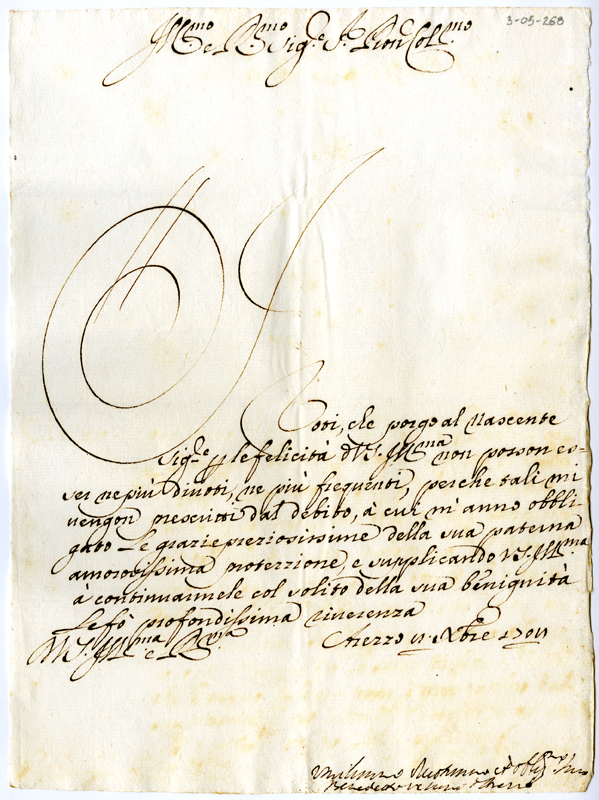 3-05-268
Ill.mo e R.mo Sig.e S. Pron Col.mo
I Voti, che porgo al Nascente
Sig.re p le felicità di V.S. Ill.ma non posson es-
ser ne più divoti, ne più frequenti, perche tali mi
vengon prescritti dal debito, à cui m'anno obbli-
gato Le grazie preziosissime della sua paterna
amorosissima protezzione, e supplicando V.S. Ill.ma
à continuarmele col solito della sua benignità
Le fò profondissima riverenza
V.S. Ill.ma e R.ma Arezzo Xbre
Umilissimo Devotissimo et Obblig.
Benedetto